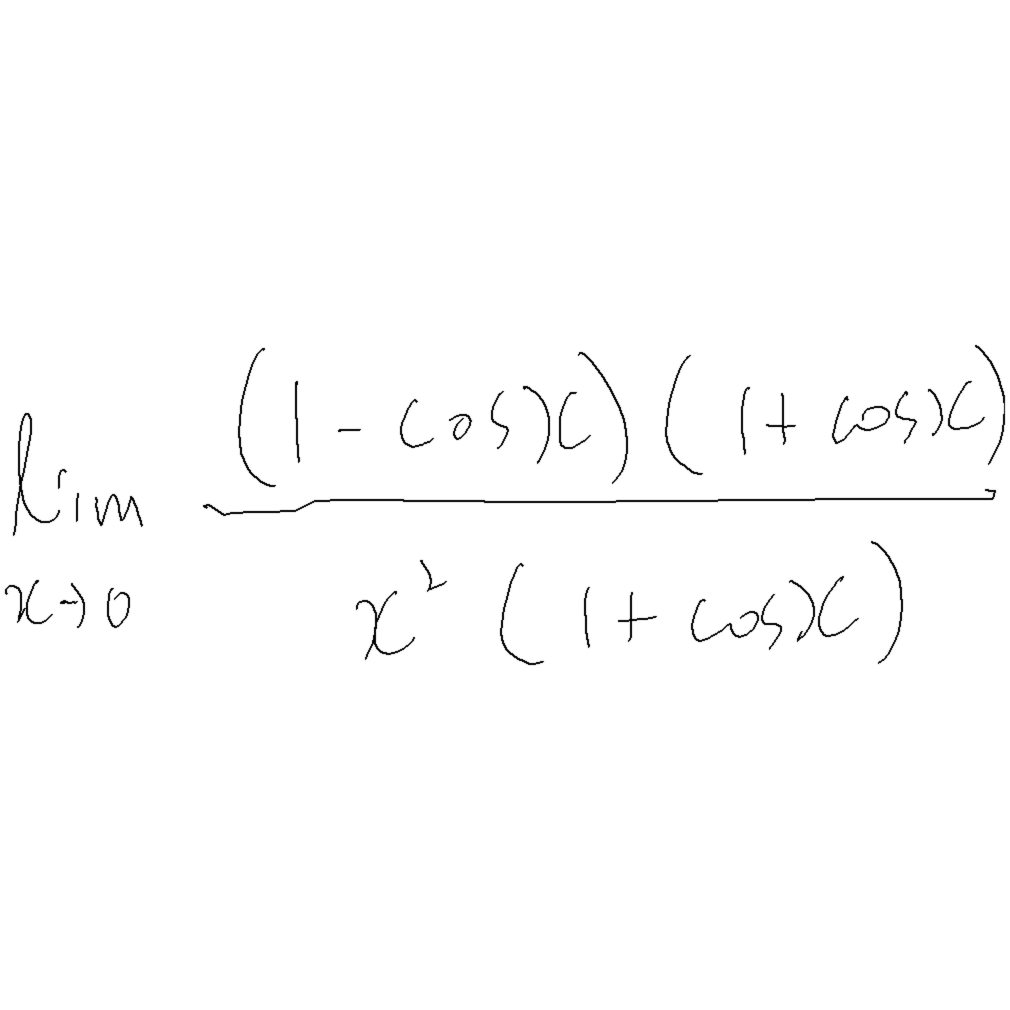 lim (1 - cosx) (1 + cosx)
x→0 x² (1 + cosx)